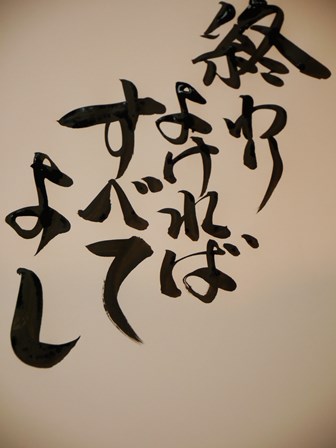 終わり
よければ
すべて
よし